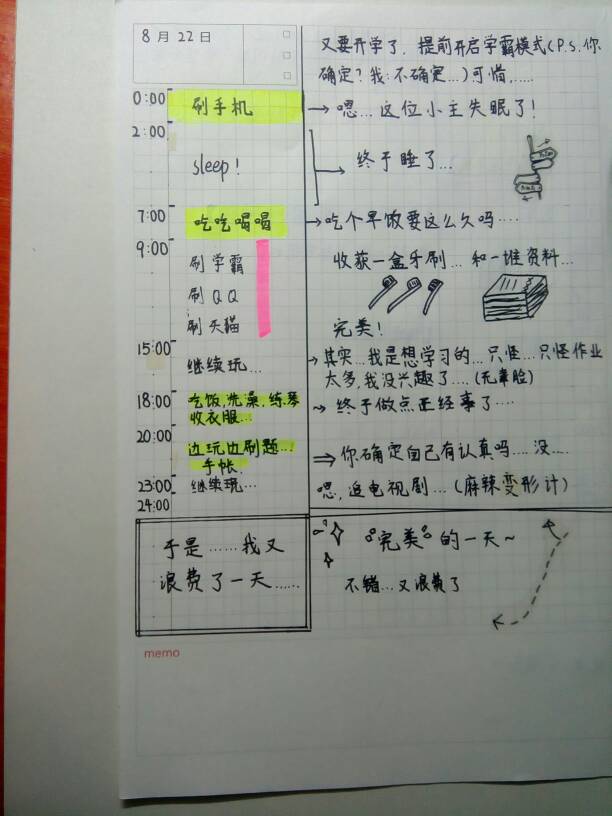 8月22日
又要开学了，提前开启学霸模式(P.S.你
确定？我:不确定...)可惜,......
0:00
刷手机
→嗯...这位小主失眠了!
2:00
sleep!
终于睡了...
7:00
吃吃喝喝
→吃个早饭要这么久吗....
9:00
刷学霸
刷QQ
刷天猫
收获一盒牙刷...和一堆资料...
完美!
15:00
继续玩...
→其实...我是想学习的...只怪...只怪作业
太多,我没兴趣了....(无辜脸)
18:00
吃饭,洗澡,练琴
收衣服...
终于做点正经事了....
20:00
边玩边刷题...
手帐.
⇒你确定自己有认真吗....没....
23:00
继续玩...
嗯,追电视剧...(麻辣变形计)
24:00
于是......我又
浪费了一天......
完美的一天~
不错...又浪费了
memo